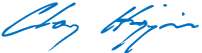 Clay Higgins